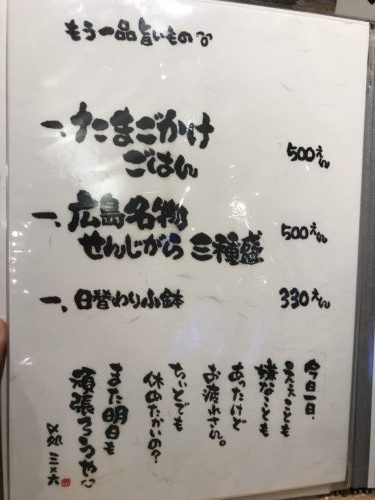 もう一品旨いもの
一、たまごかけ
ごはん
500えん
一、広島名物
せんじがら 三種盛
500えん
一、日替わり小鉢
330えん
今日一日、
ええことも
嫌なことも
あったけど
お疲れさん。
ちぃとでも
休めたかいの?
また明日も
頑張ろうや
〆処 三×六